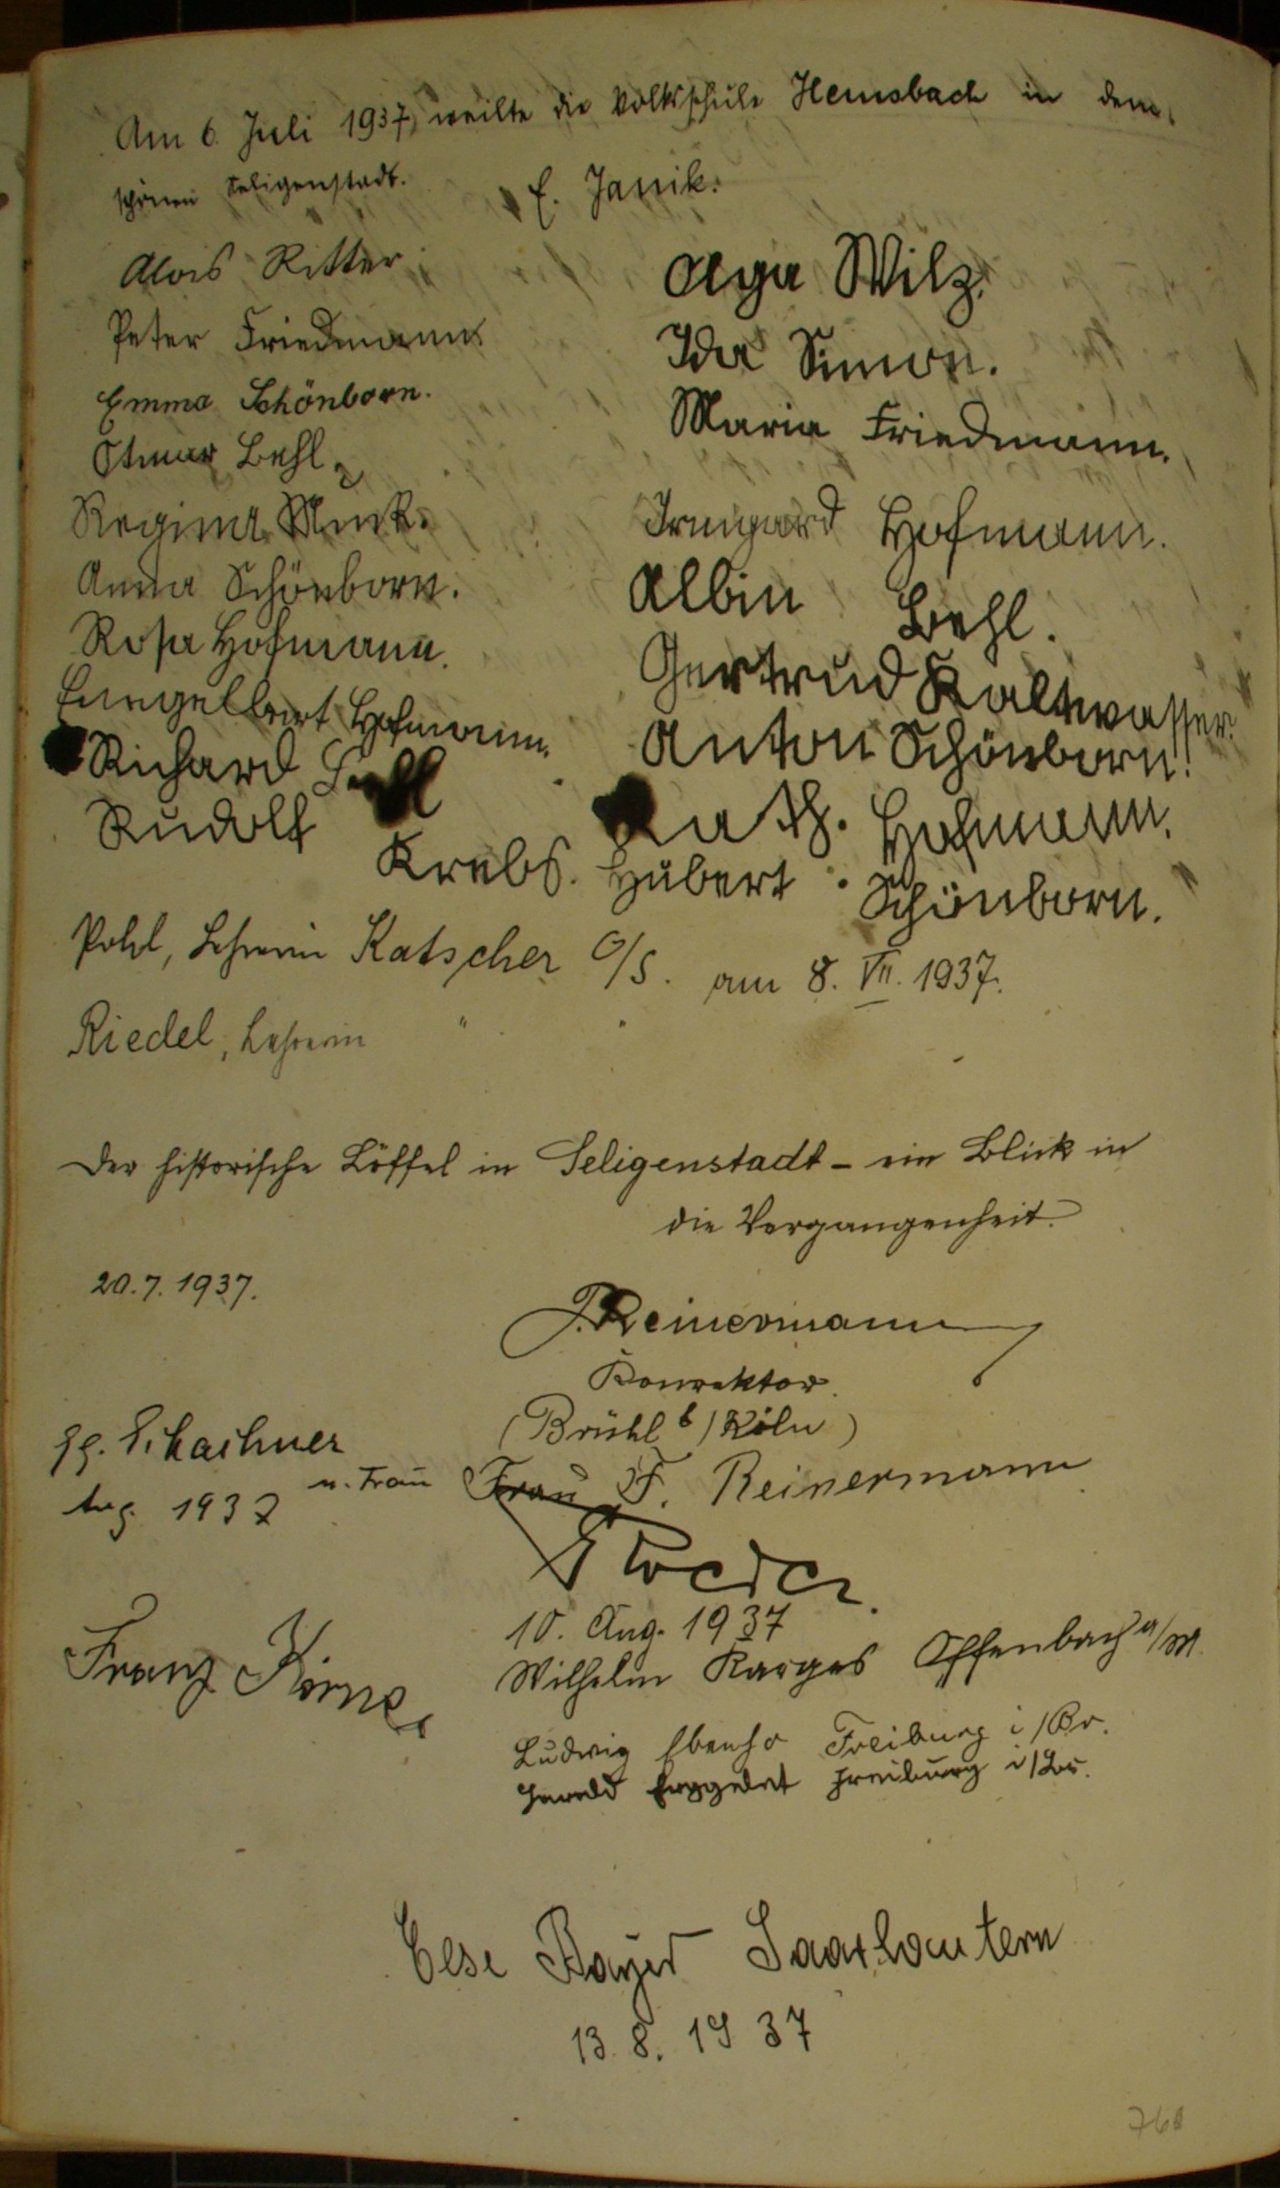 Am 6. Juli 1937, weilte die Volksschule Hemsbach in dem
schönen Seligenstadt.
E. Janik.
Alois Ritter
Peter Friedmann
Emma Schönborn.
Otmar Behl.
Regina Munk.
Anna Schönborn.
Rosa Hofmann.
Engelbert Hofmann.
Richard Behl
Rudolf Krebs.
Olga Wilz.
Ida Simon.
Maria Friedmann.
Irmgard Hofmann.
Albin Behl.
Gertrud Kaltwasser.
Anton Schönborn!
Kath. Hofmann.
Hubert Schönborn.
Pohl, Lehrerin Katscher O/S. am 8. VII. 1937.
Riedel, Lehrerin " "
Der historische Löffel in Seligenstadt – ein Blick in
die Vergangenheit.
20.7.1937.
J. Reinermann
Konrektor.
(Brühl b/Köln)
Frau F. Reinermann
Gg. Schachner
u. Frau
Aug. 1937
10. Aug. 1937
Franz
Wilhelm Karges Offenbach a/M.
Ludwig Freiburg i/Br.
Freiburg i/Br.
Else Bayer Saarlautern
13.8.1937
768